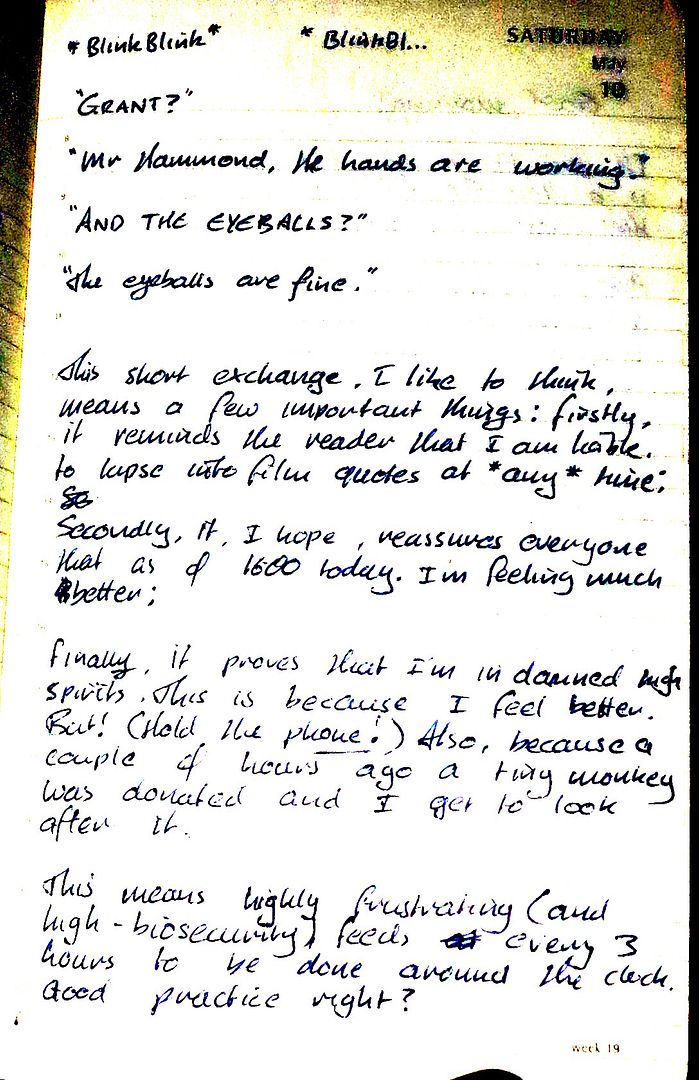 SATURDAY
May
10
*BlinkBlink* *BlinkBl...
"GRANT?"
"Mr Hammond, the hands are working."
"AND THE EYEBALLS?"
"The eyeballs are fine."
This short exchange, I like to think,
means a few important things: firstly,
it reminds the reader that I am liable
to lapse into film quotes at *any* time;
Secondly, it, I hope, reassures everyone
that as of 1600 today, I'm feeling much
better;
finally, it proves that I'm in damned high
spirits. This is because I feel better.
But! (Hold the phone!) Also, because a
couple of hours ago a tiny monkey
was donated and I get to look
after it.
This means highly frustrating (and
high-biosecurity) feeds every 3
hours to be done around the clock.
Good practice right?
week 19